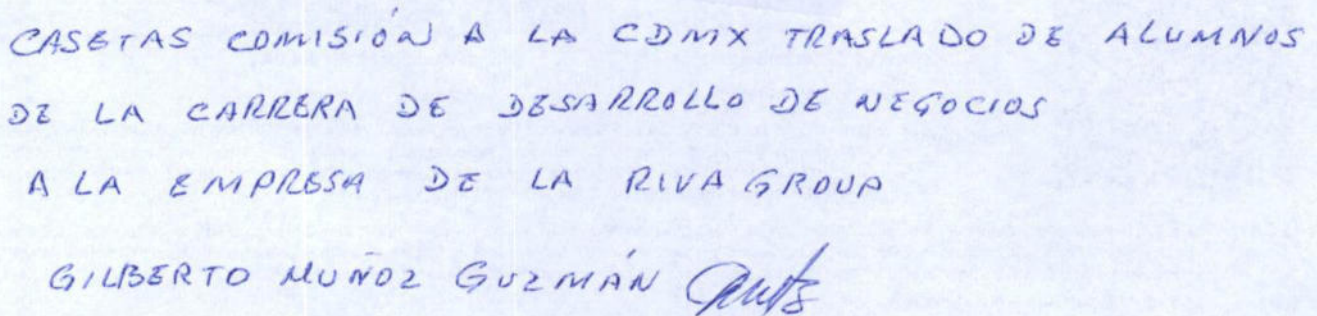 CASETAS COMISIÓN A LA CDMX TRASLADO DE ALUMNOS
DE LA CARRERA DE DESARROLLO DE NEGOCIOS
A LA EMPRESA DE LA RIVA GROUP
GILBERTO MUÑOZ GUZMÁN